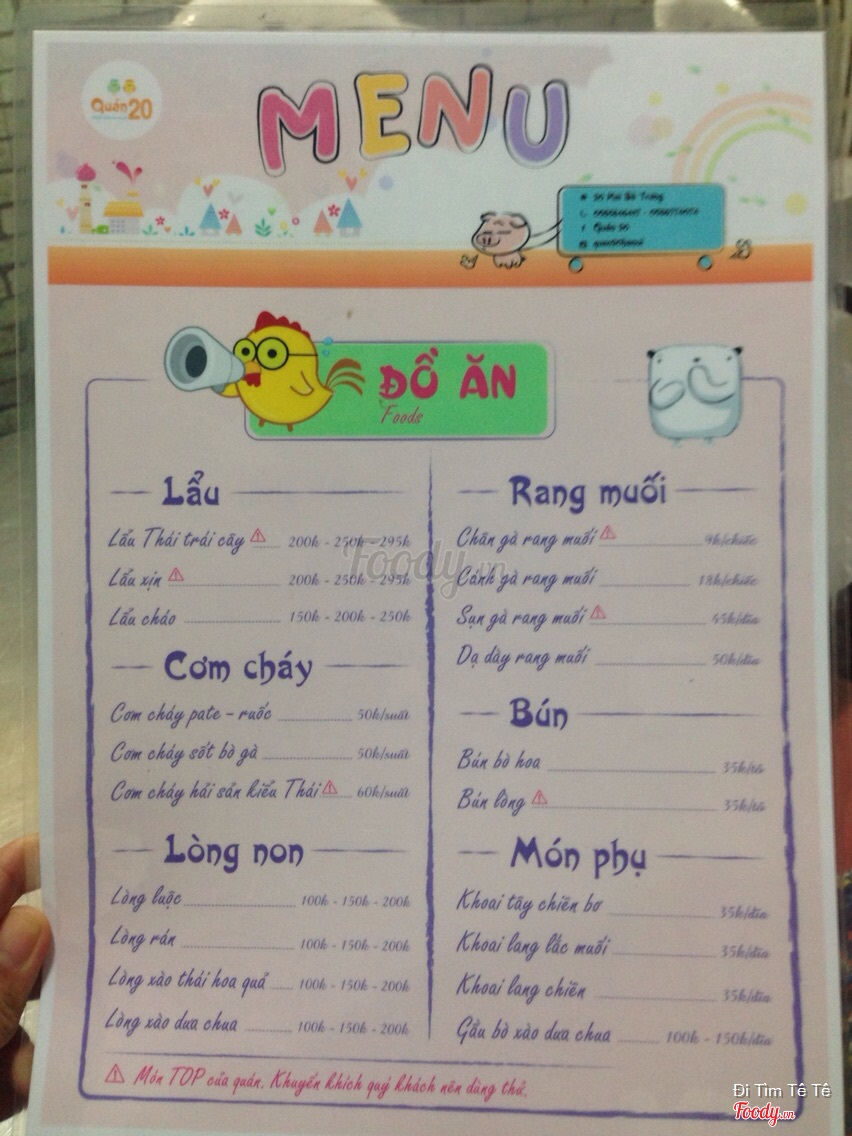 Quán 20
MENU
Quán 20
ĐỒ ĂN
Foods
Lẩu
Lẩu Thái trái cây 200k - 250k - 295k
Lẩu xịn 200k - 250k - 295k
Lẩu cháo 150k - 200k - 250k
Cơm cháy
Cơm cháy pate - ruốc 50k/suất
Cơm cháy sốt bò gà 50k/suất
Cơm cháy hải sản kiểu Thái 60k/suất
Lòng non
Lòng luộc 100k - 150k - 200k
Lòng rán 100k - 150k - 200k
Lòng xào thái hoa quả 100k - 150k - 200k
Lòng xào dưa chua 100k - 150k - 200k
Rang muối
Chân gà rang muối 9k/chiếc
Cánh gà rang muối 18k/chiếc
Sụn gà rang muối 45k/đĩa
Dạ dày rang muối 50k/đĩa
Bún
Bún bò hoa 35k/tô
Bún lòng 35k/tô
Món phụ
Khoai tây chiên bơ 35k/đĩa
Khoai lang lắc muối 35k/đĩa
Khoai lang chiên 35k/đĩa
Gầu bò xào dưa chua 100k - 150k/đĩa
Món TOP của quán. Khuyến khích quý khách nên dùng thử.
Foody.vn
Đi Tìm Tê Tê
Foody.vn